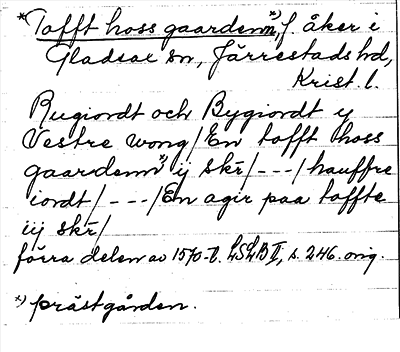 *Tofft hoss gaardenn*), f. åker i
Gladsax sn, Järrestads hd,
Krist. l.
Rugiordt och Bygiordt y
Vestre wong/En tofft hoss
gaardenn*) ij skr̄/---/hauffre
iordt/---/En agir paa toffte
iij skr̄/
förra delen av 1570-t. LSLB II, s. 246. orig.
*) prästgården.